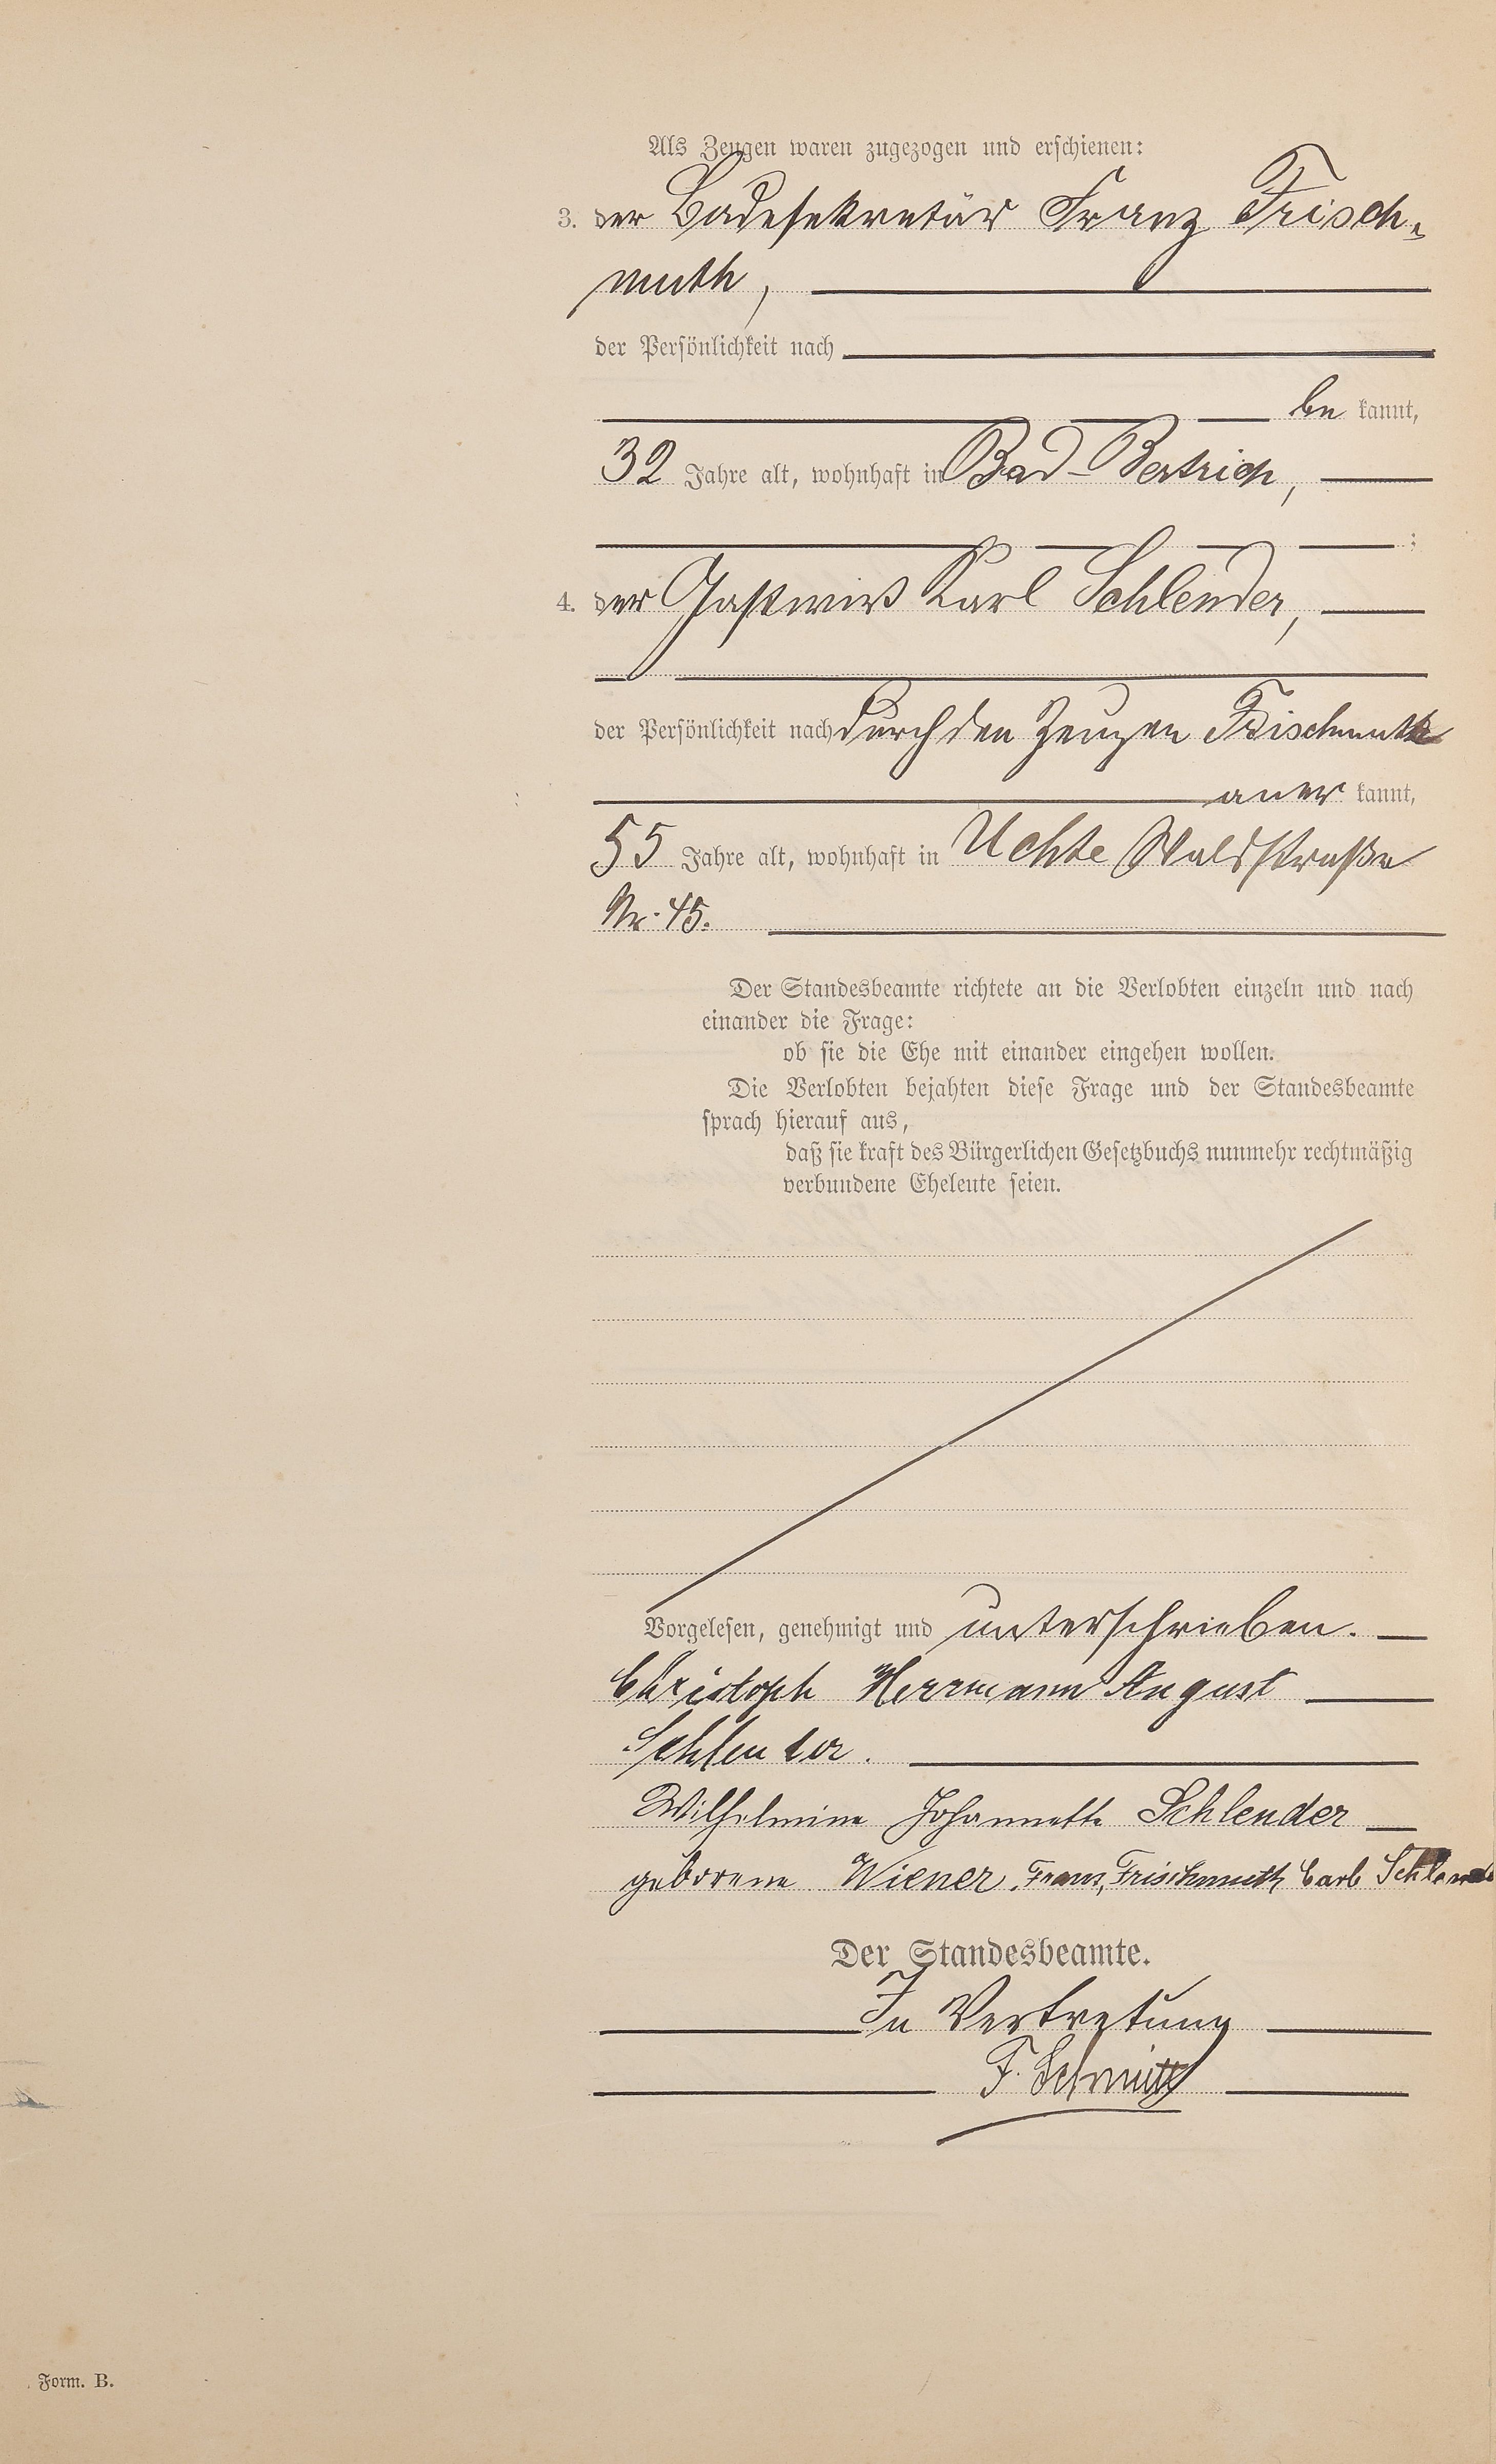 Als Zeugen waren zugezogen und erschienen:
3. der Badesekretär Franz Frisch-
muth,
der Persönlichkeit nach
be kannt,
32 Jahre alt, wohnhaft in Bad-Bertrich,
;
4. der Gastwirt Karl Schlender,
der Persönlichkeit nach durch den Zeugen Frischmuth
aner kannt,
55 Jahre alt, wohnhaft in Uchte Waldstraße
Nr. 45.
Der Standesbeamte richtete an die Verlobten einzeln und nach
einander die Frage:
ob sie die Ehe mit einander eingehen wollen.
Die Verlobten bejahten diese Frage und der Standesbeamte
sprach hierauf aus,
daß sie kraft des Bürgerlichen Gesetzbuchs nunmehr rechtmäßig
verbundene Eheleute seien.
Vorgelesen, genehmigt und unterschrieben.
Christoph Herrmann August
Schlender.
Wilhelmine Johannette Schlender
geborene Wiener. Franz Frischmuth Carl Schlender
Der Standesbeamte.
In Vertretung
F. Schmitt
Form. B.